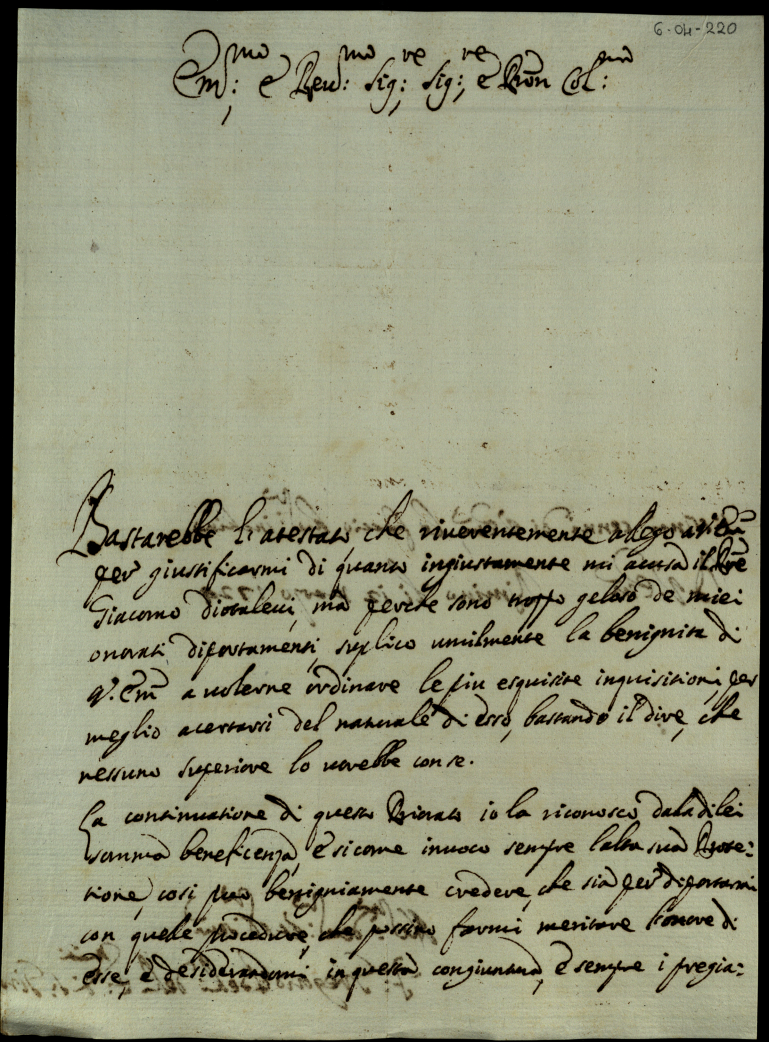 6-04-220
Em:mo e Reu:mo Sig:re Sig:re e Pron Col:mo
Bastarebbe l'atestato, che riuerentemente alego a V. Em:a
per giustificarmi di quanto ingiustamente mi acusa il Pre
Giacomo diotaleui, ma perche sono troppo geloso de miei
onorati diportamenti, suplico umilmente la benignita di
V. Em:a a uolerne ordinare le piu esquisite inquisitioni, per
meglio acertarsi del naturale di esso, bastando il dire, che
nessuno superiore lo uorebbe con se.
La continuatione di questo Priorato io la riconosco dala di lei
somma beneficenza, e sicome inuoco sempre l'alta sua Prote:
tione, cosi puo benigniamente credere, che sia per diportarmi
con quele procedure, che possino farmi meritare l'onore di
esse, e desiderandomi in questa congiuntura, e sempre i pregia: